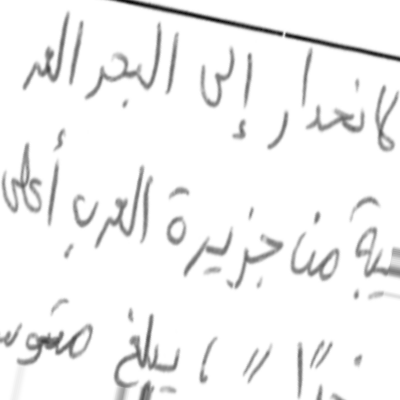 لانحدار إلى البحر العر
بية من جزيرة العرب أعلى
" ، يبلغ متوس